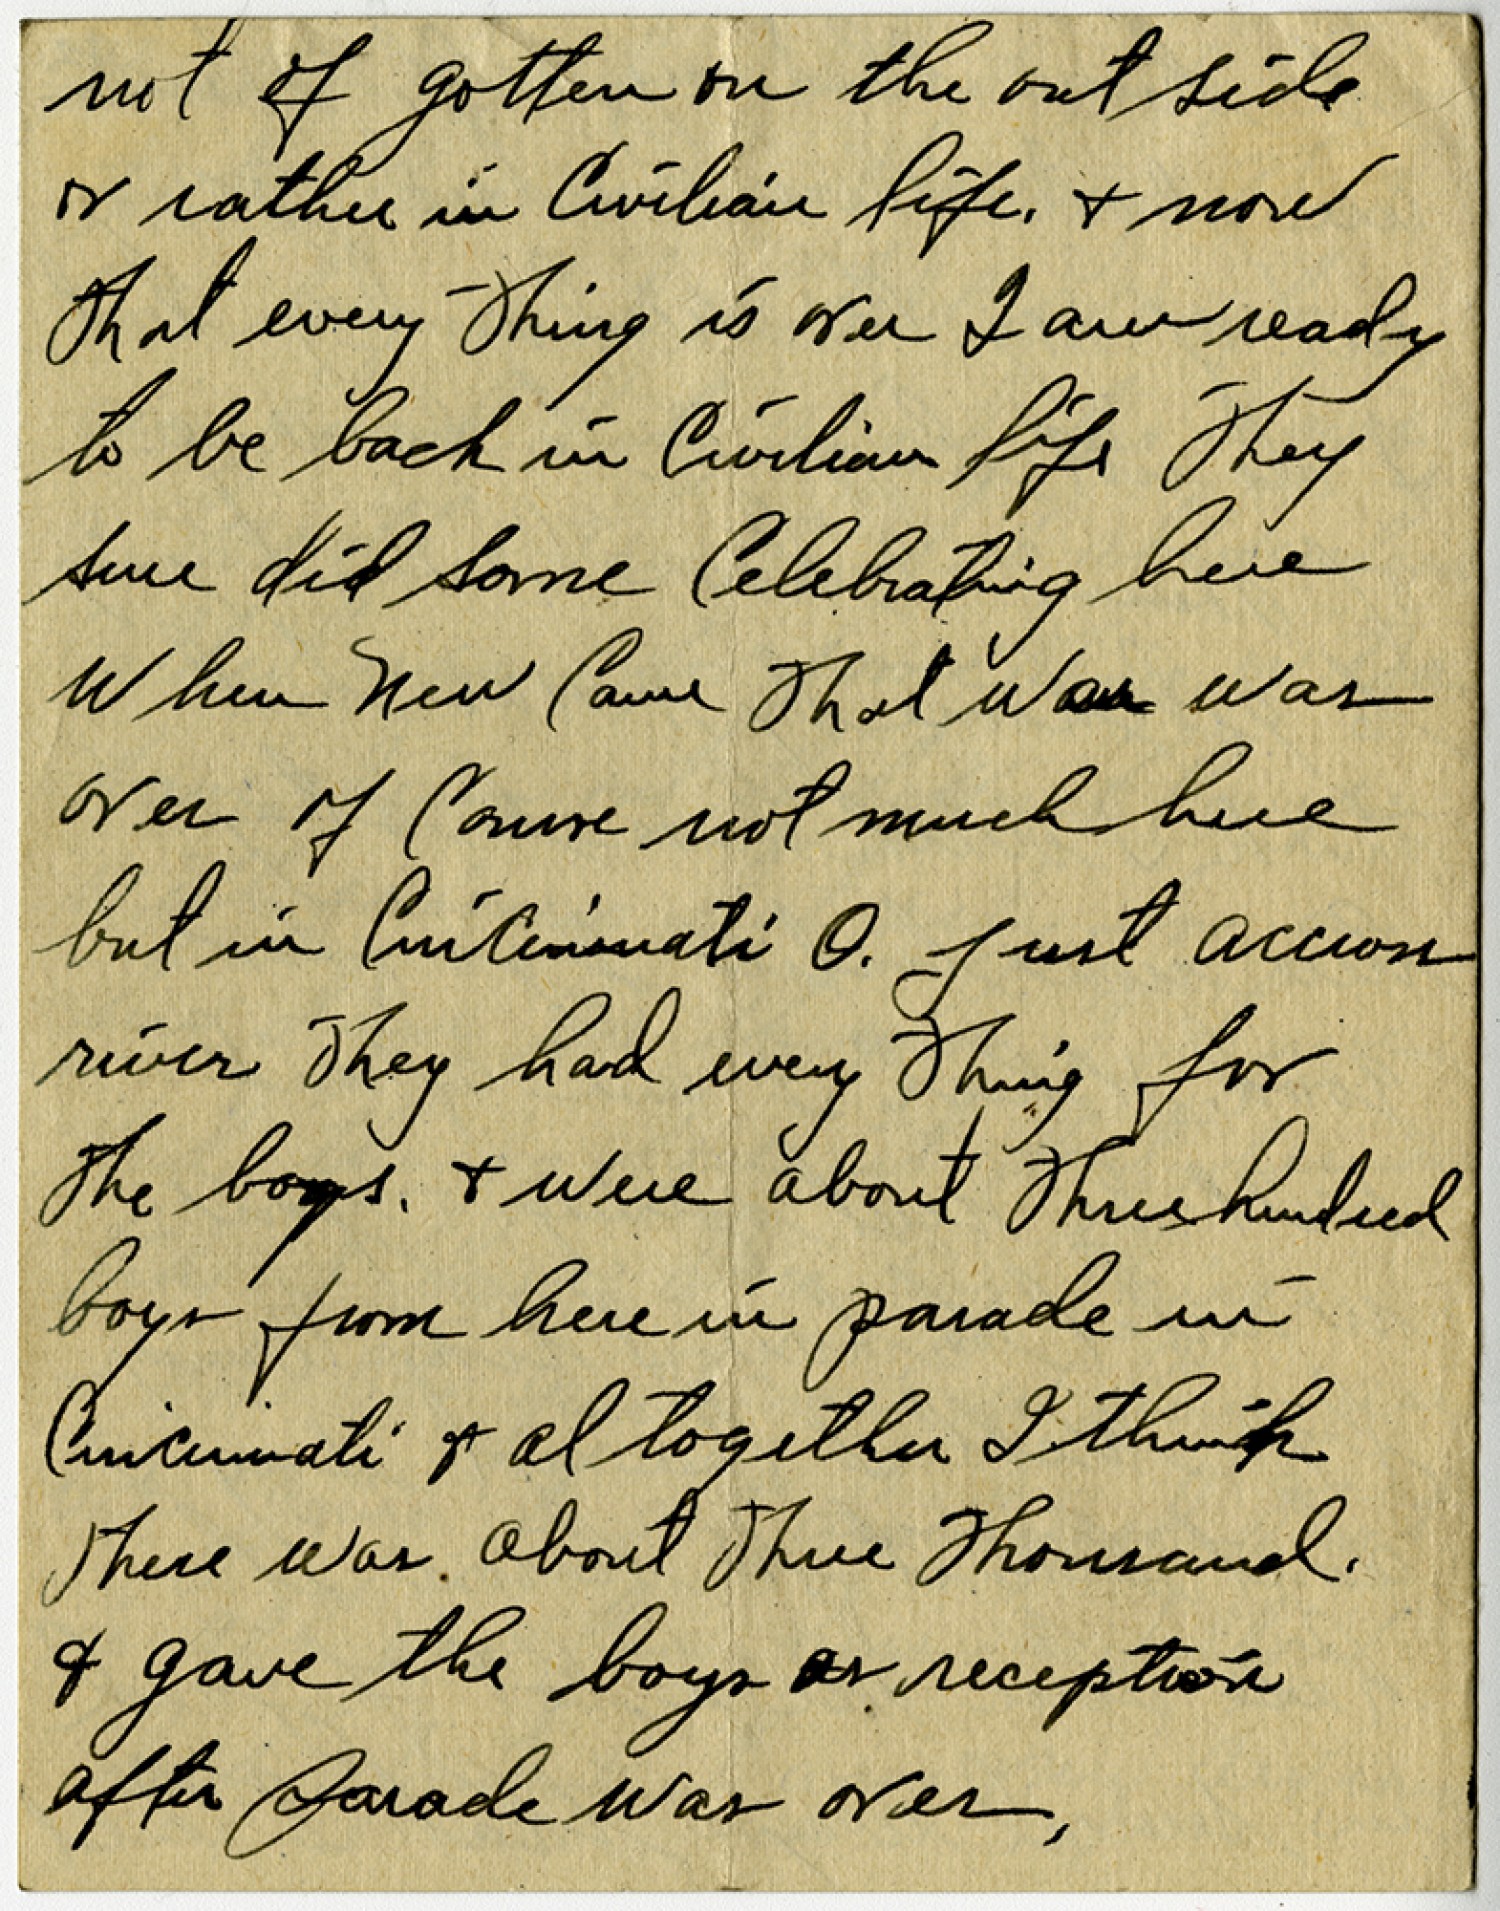 not of gotten on the out side
or rather in Civilian life. & now
that every thing is over I am ready
to be back in Civilian life They
sure did some Celebrating here
When New Came That war was
over of Course not much here
but in Cincinnati O. just accross
river They had every Thing for
the boys. & were about Three hundred
boys from here in parade in
Cincinnati & al together I think
There was about Three Thousand.
& gave the boys a reception
after Parade was over,